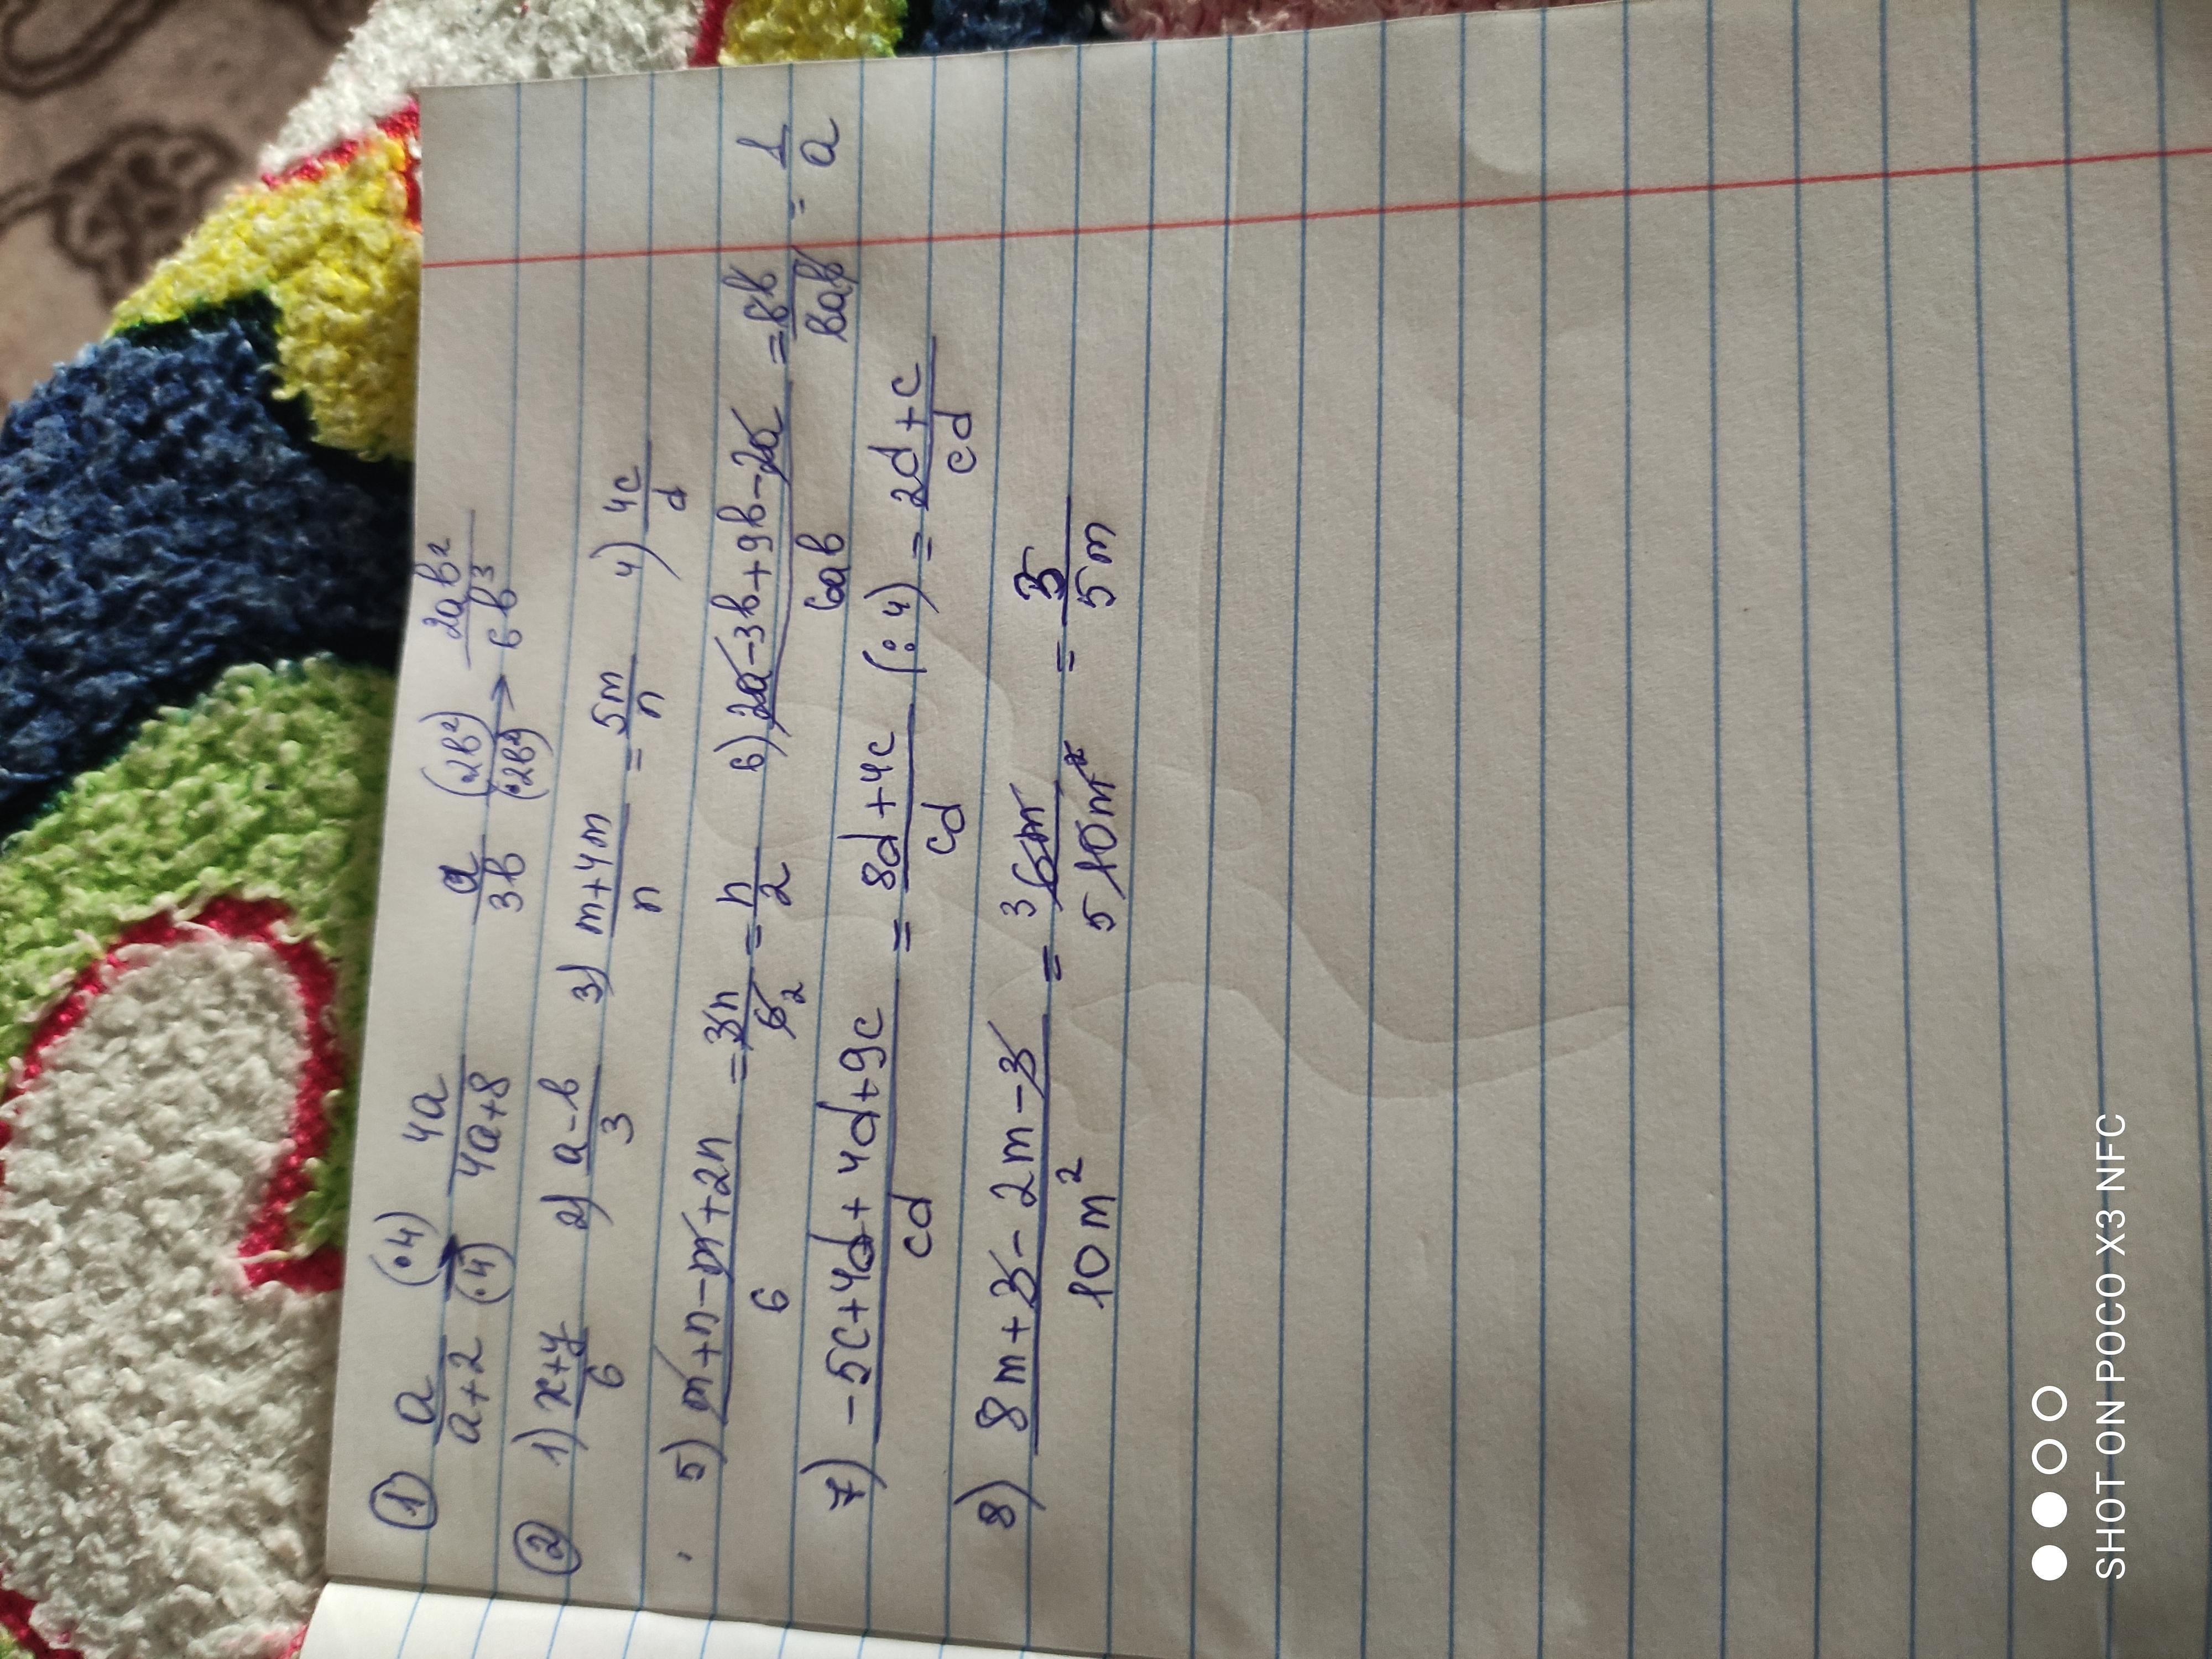 ① a/(a+2) (·4)/(·4) → 4a/(4a+8) a/3b (·2b²)/(·2b²) → 2ab²/6b³
② 1) (x+y)/6 2) (a-b)/3 3) (m+4m)/n = 5m/n 4) 4c/d
5) (m+n-m+2n)/6 = 3n/6 2 = n/2 6) (2a-3b+9b-2a)/6ab = 6b/6ab = 1/a
7) (-5c+4d+4d+9c)/cd = (8d+4c)/cd (:4) = (2d+c)/cd
8) (8m+3-2m-3)/10m² = 3 6m/5 10m² = 3/5m
SHOT ON POCO X3 NFC